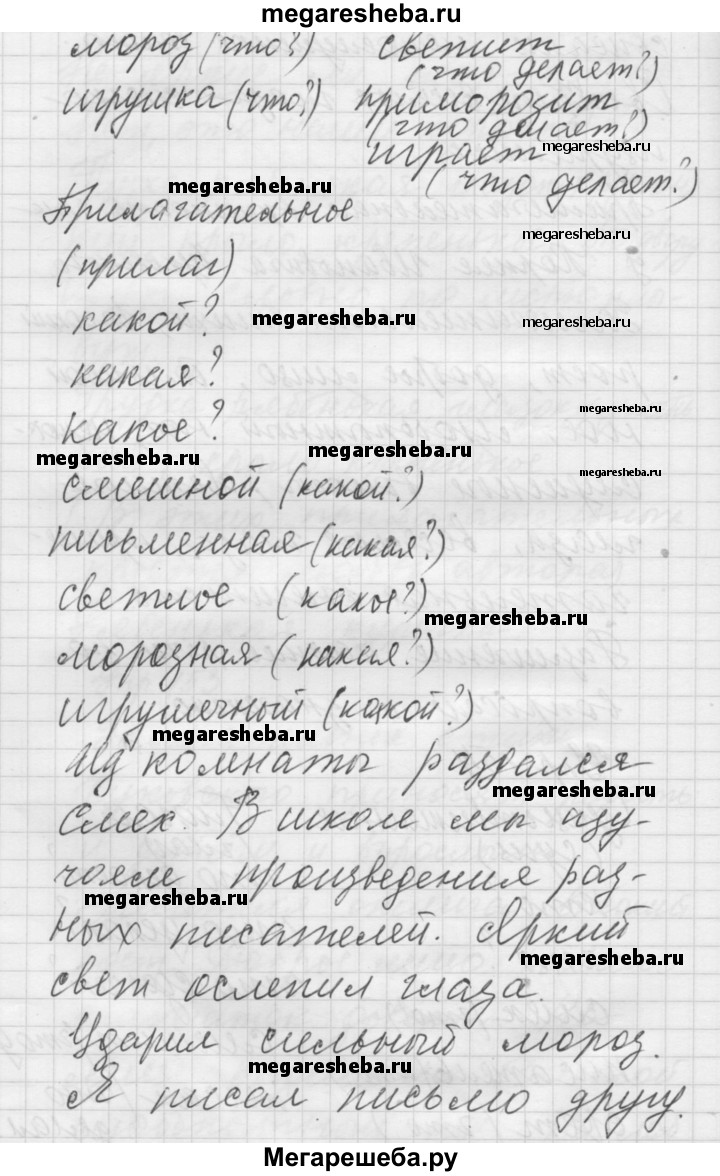 megaresheba.ru
мороз (что?) светит
(что делает?)
игрушка (что?) приморозит
(что делает?)
играет megaresheba.ru
megaresheba.ru (что делает?)
Прилагательное
megaresheba.ru
(прилаг)
какой? megaresheba.ru megaresheba.ru
какая?
megaresheba.ru
какое?
megaresheba.ru megaresheba.ru
megaresheba.ru
смешной (какой?)
письменная (какая?)
светлое (какое?)
megaresheba.ru
морозная (какая?)
игрушечный (какой?)
megaresheba.ru
Из комнаты раздался
megaresheba.ru
смех. В школе мы изу-
чаем произведения раз-
megaresheba.ru
ных писателей. Яркий
megaresheba.ru
свет ослепил глаза.
Ударил сильный мороз.
megaresheba.ru
Я писал письмо другу.
Мегарешеба.ру